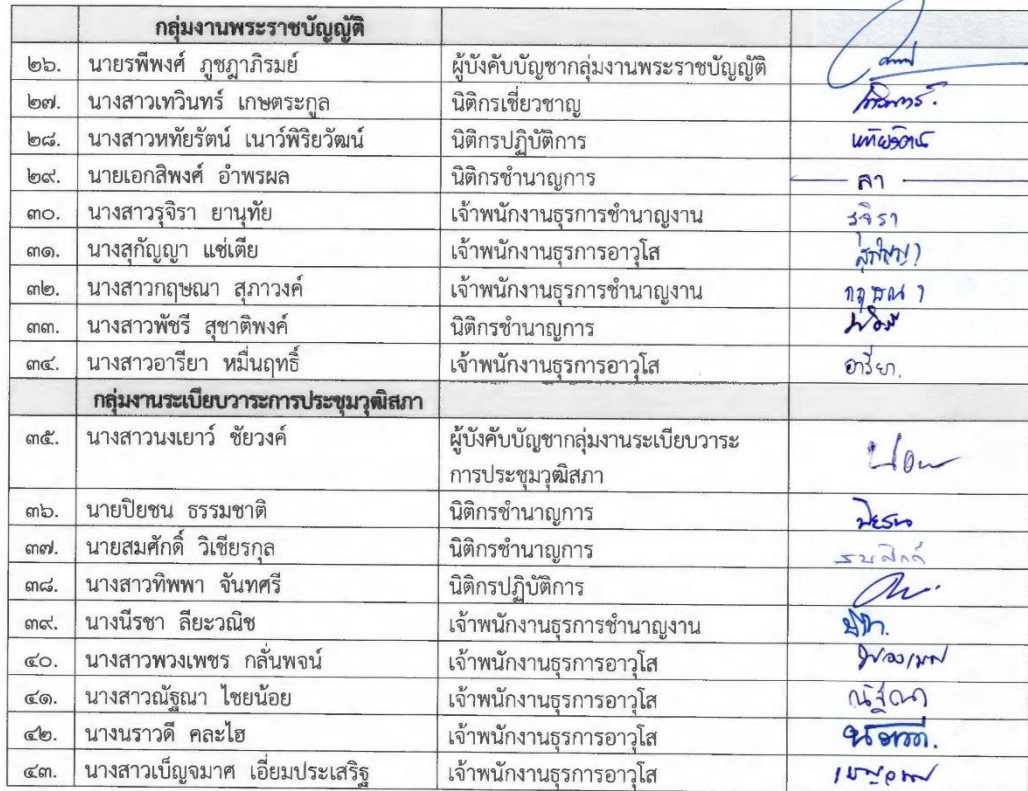 กลุ่มงานพระราชบัญญัติ
๒๖. นายรพีพงศ์ ภูชฎาภิรมย์ ผู้บังคับบัญชากลุ่มงานพระราชบัญญัติ
๒๗. นางสาวเทวินทร์ เกษตระกูล นิติกรเชี่ยวชาญ
๒๘. นางสาวหทัยรัตน์ เนาว์พิริยวัฒน์ นิติกรปฏิบัติการ หทัยรัตน์
๒๙. นายเอกสิพงศ์ อำพรผล นิติกรชำนาญการ ลา
๓๐. นางสาวรุจิรา ยานุทัย เจ้าพนักงานธุรการชำนาญงาน รุจิรา
๓๑. นางสุกัญญา แซ่เตีย เจ้าพนักงานธุรการอาวุโส สุกัญญา
๓๒. นางสาวกฤษณา สุภาวงค์ เจ้าพนักงานธุรการชำนาญงาน กฤษณา
๓๓. นางสาวพัชรี สุชาติพงค์ นิติกรชำนาญการ
๓๔. นางสาวอารียา หมื่นฤทธิ์ เจ้าพนักงานธุรการอาวุโส อารียา.
กลุ่มงานระเบียบวาระการประชุมวุฒิสภา
๓๕. นางสาวนงเยาว์ ชัยวงค์ ผู้บังคับบัญชากลุ่มงานระเบียบวาระ
การประชุมวุฒิสภา
๓๖. นายปิยชน ธรรมชาติ นิติกรชำนาญการ
๓๗. นายสมศักดิ์ วิเชียรกุล นิติกรชำนาญการ
๓๘. นางสาวทิพพา จันทศรี นิติกรปฏิบัติการ
๓๙. นางนีรชา ลียะวณิช เจ้าพนักงานธุรการชำนาญงาน
๔๐. นางสาวพวงเพชร กลั่นพจน์ เจ้าพนักงานธุรการอาวุโส
๔๑. นางสาวณัฐณา ไชยน้อย เจ้าพนักงานธุรการอาวุโส ณัฐณา
๔๒. นางนราวดี คละไฮ เจ้าพนักงานธุรการอาวุโส
๔๓. นางสาวเบ็ญจมาศ เอี่ยมประเสริฐ เจ้าพนักงานธุรการอาวุโส